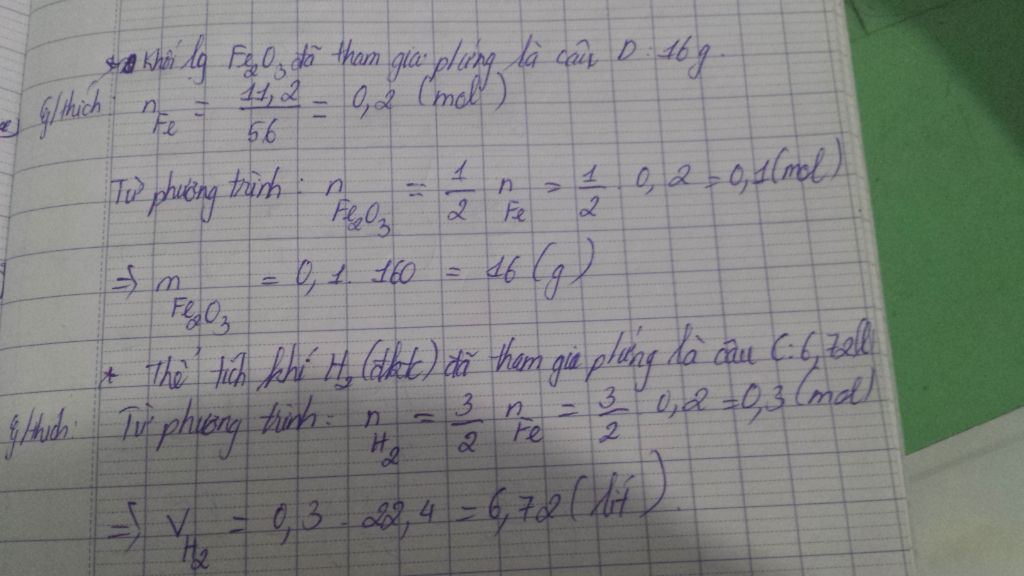 * khối lg Fe2O3 đã tham gia pứng là câu D: 16g.
g/thích: nFe = 11,2/56 = 0,2 (mol)
Từ phương trình: nFe2O3 = 1/2 nFe = 1/2 . 0,2 = 0,1 (mol)
=> mFe2O3 = 0,1 . 160 = 16 (g)
* Thể tích khí H2 (đktc) đã tham gia pứng là câu C: 6,72lít
g/thích: Từ phương trình: nH2 = 3/2 nFe = 3/2 0,2 = 0,3 (mol)
=> VH2 = 0,3 . 22,4 = 6,72 (lít).